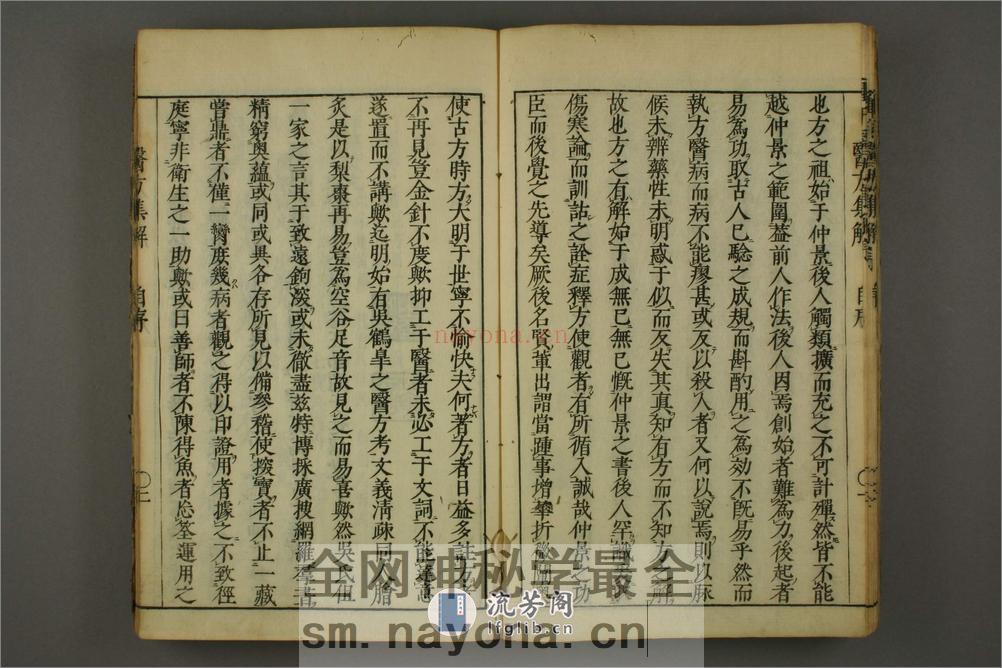 也方之祖始于仲景後人觸類擴而充之不可計殫然皆不能
越仲景之範圍葢前人作法後人因焉創始者難為力後起者
易為功取古人已驗之成規而斟酌用之為効不旣易乎然而
執方醫病而病不能瘳甚或反以殺人者又何以說焉則以脉
候未辨藥性未明惑于似而反失其真知有方而不知方解
故也方之有解始于成無已無已慨仲景之書後人罕識爰
傷寒論而訓詁之詮症釋方使觀者有所循入誠哉仲景之功
臣而後覺之先導矣厥後名賢輩出謂當踵事增華折
使古方時方大明于世寧不愉快夫何著方者日益多註方
不再見豈金針不度歟抑工于醫者未必工于文詞不能達意
遂置而不講歟迄明始有吳鶴臯之醫方考文義清疎同人膾
炙是以梨棗再易豈為空谷足音故見之而易喜歟然吳氏但
一家之言其于致遠鉤深或未徹盡兹特博採廣搜網羅羣書
精窮奥蘊或同或異各存所見以備參稽使探寶者不止一藏
嘗鼎者不僅一臠庶幾病者觀之得以印證用者據之不致徑
庭寧非衛生之一助歟或曰善師者不陳得魚者忘筌運用之
醫方集解
自序
二
全网神秘学最全
流芳阁
lfglib.cn
sm.nayona.cn
nayona.cn